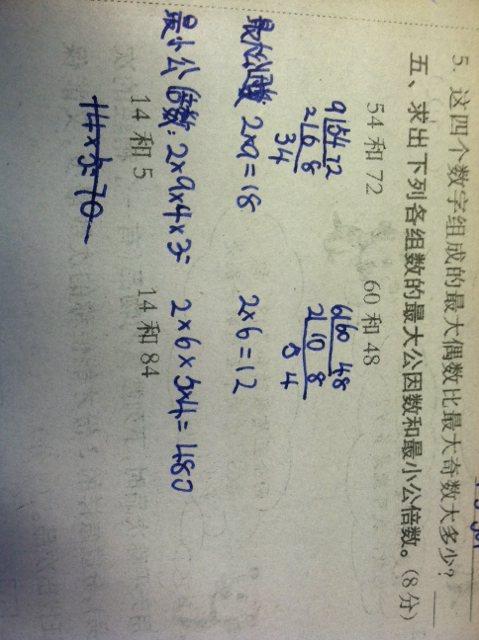 5. 这四个数字组成的最大偶数比最大奇数大多少?
五、求出下列各组数的最大公因数和最小公倍数。(8分)
54 和 72
60 和 48
9 54 72
2 6 8
3 4
6 60 48
2 10 8
5 4
2×9=18
2×6=12
最小公倍数: 2×9×4×3=
2×6×5×4=480
14 和 5
14 和 84
14×5=70